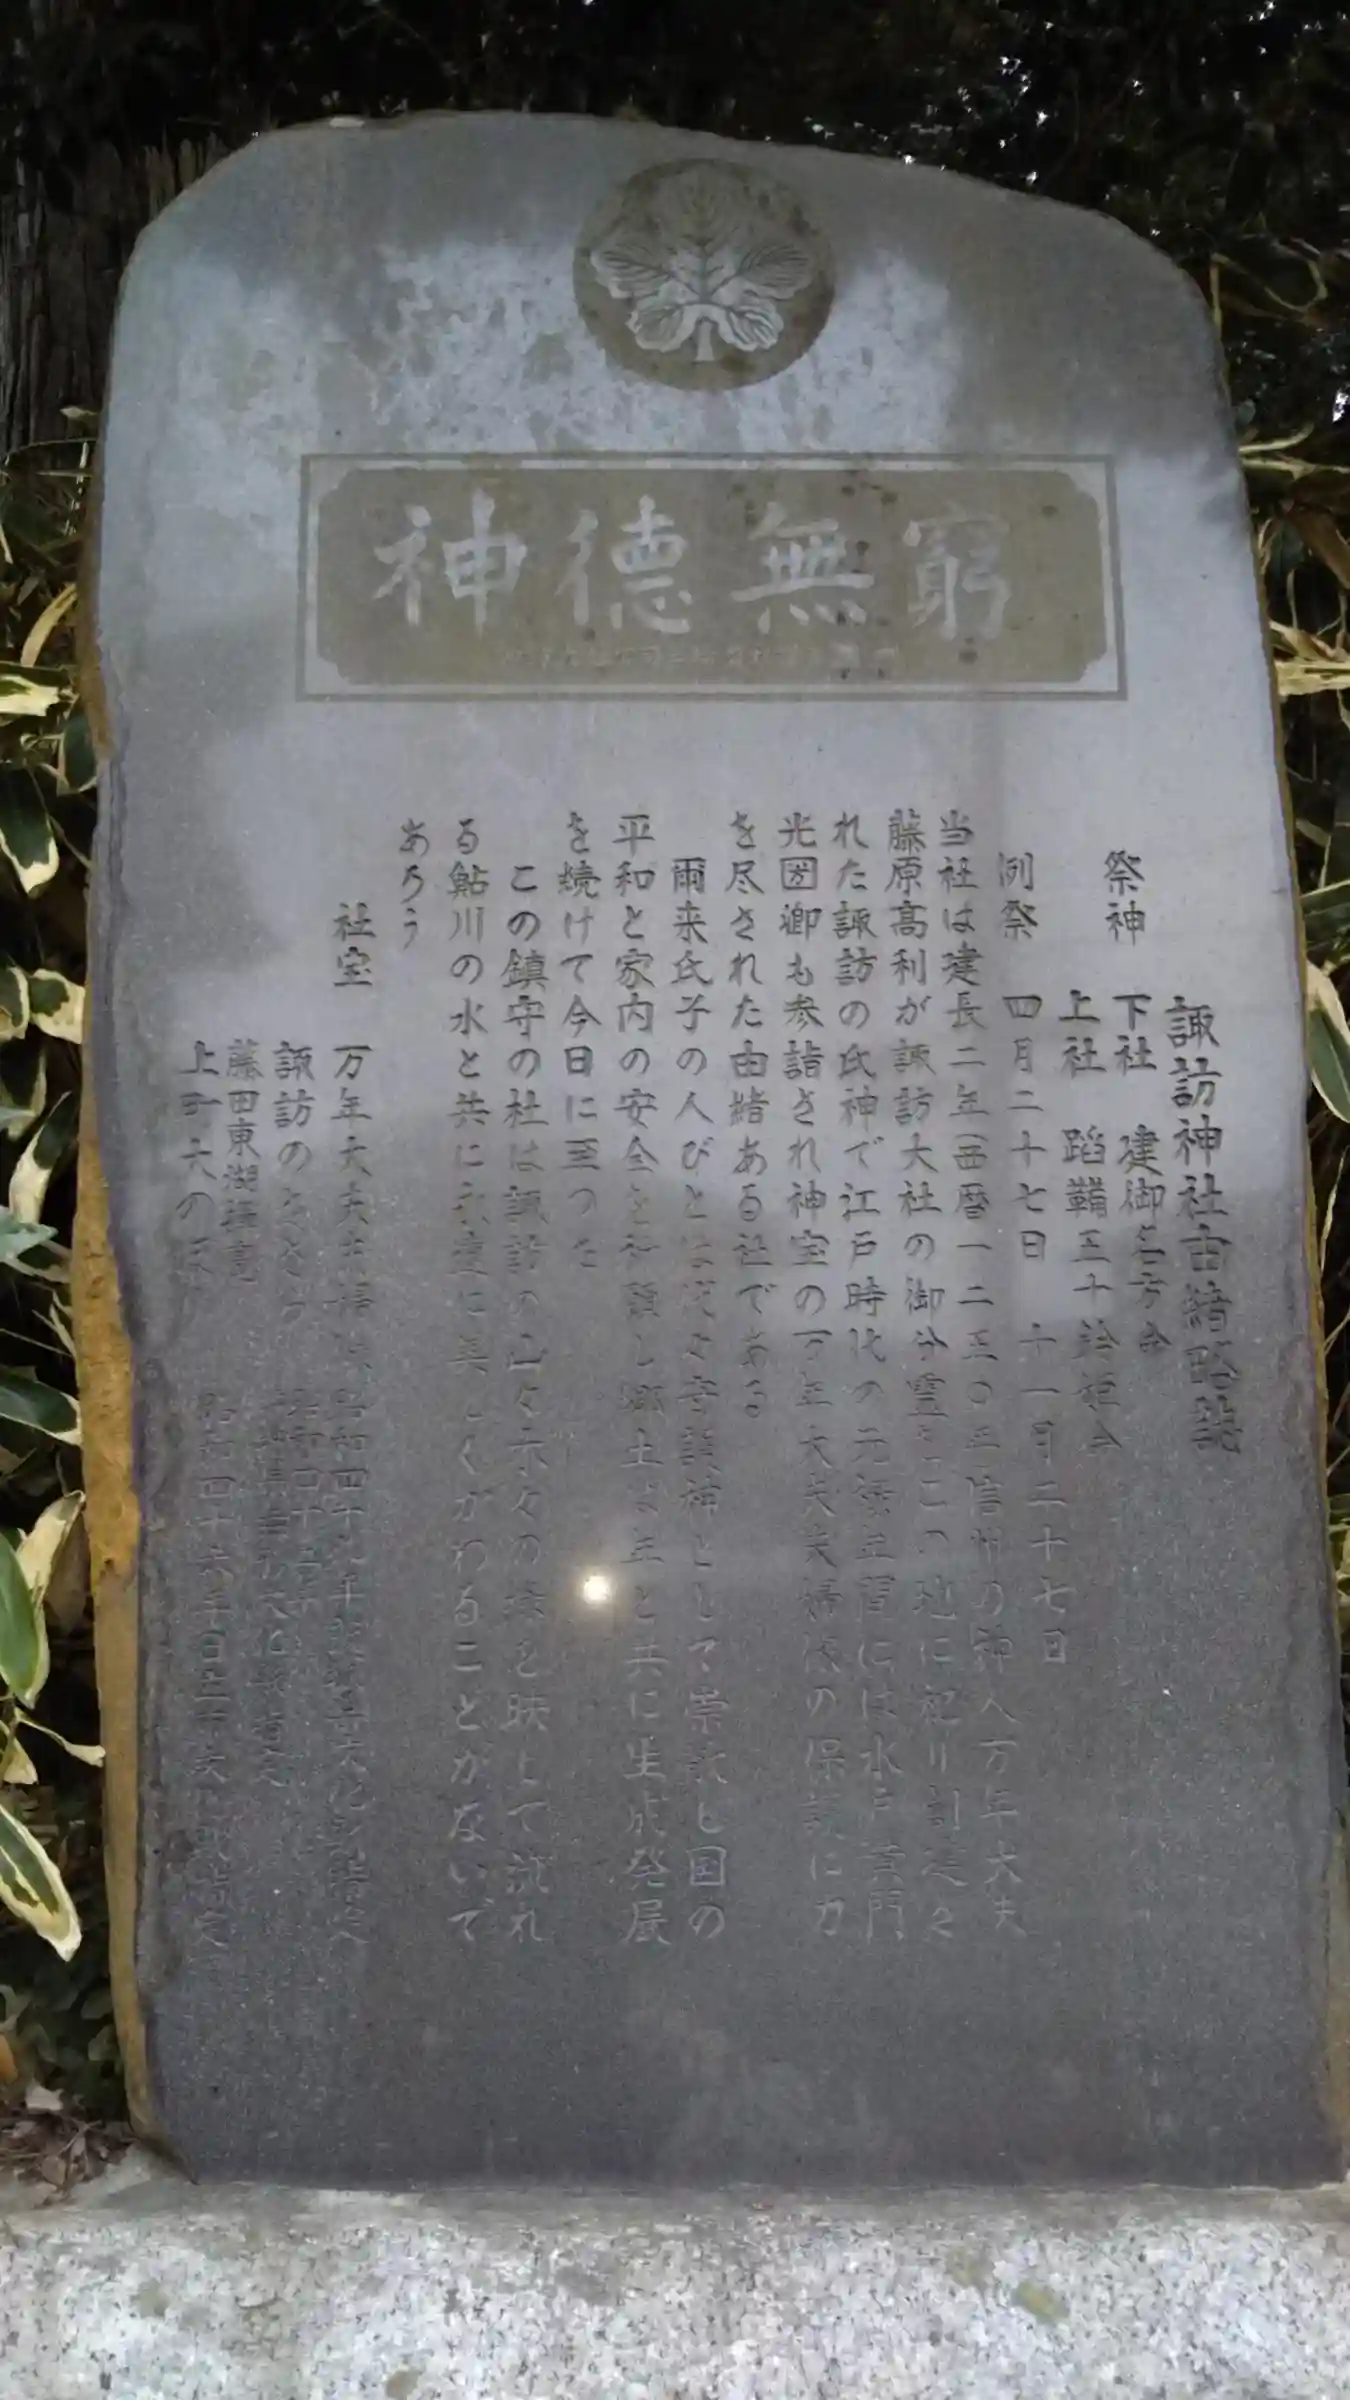 神徳無窮
諏訪神社由緒略誌
祭神 下社 建御名方命
上社 蹈鞴五十鈴姫命
例祭 四月二十七日 十一月二十七日
当社は建長二年(西暦一二五〇年)信州の神人万年大夫
藤原高利が諏訪大社の御分霊をこの地に祀り創建さ
れた諏訪の氏神で江戸時代の元禄年間には水戸黄門
光圀卿も参詣され神宝の万年大夫夫婦像の保護に力
を尽された由緒ある社である
爾来氏子の人びとは 守護神として崇敬し国の
平和と家内の安全を祈願し郷土 年と共に生成発展
を続けて今日に至った
この鎮守の杜は諏訪の山々 木々の緑を映して流れ
る鮎川の水と共に永遠に美しくかわることがないで
あろう
社宝 万年大夫夫婦 昭和四十九年 文化財指定
諏訪のささら 昭和四十
藤田東湖 文化財指定
上町大の 昭和四十六年日立市文化財指定